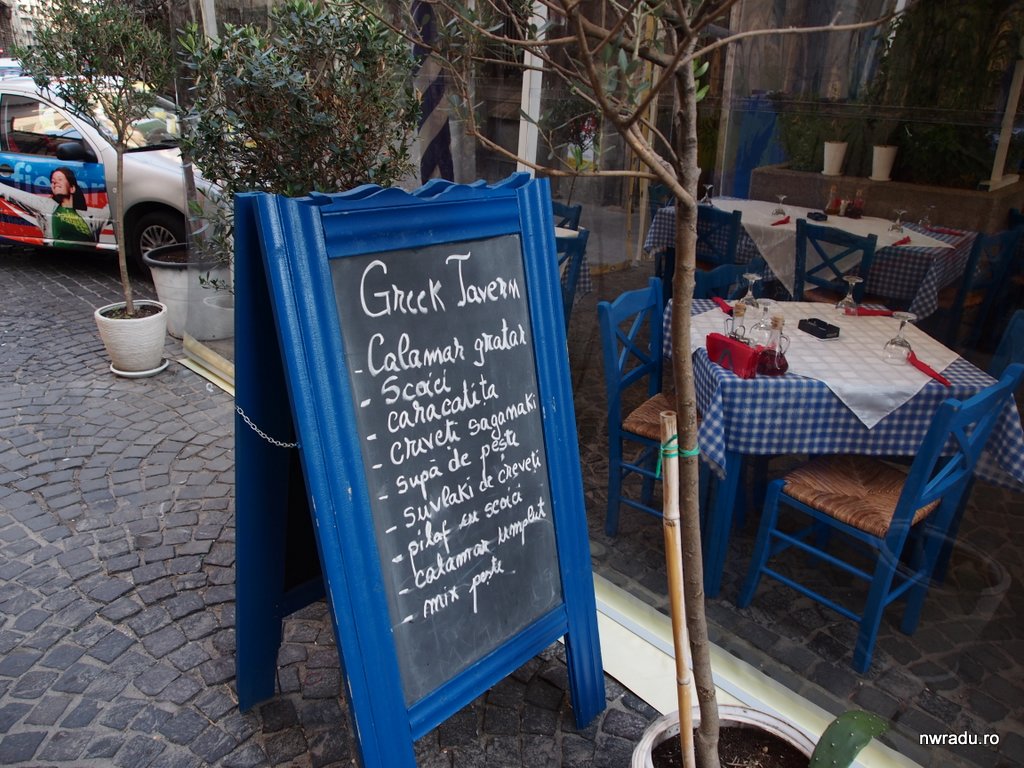 Greek Tavern
- Calamar gratar
- Scoici
caracatita
- criveti sagamaki
- supa de pește
- suvlaki de creveți
- pilaf cu scoici
- calamar umplut
- mix peste
nwradu.ro